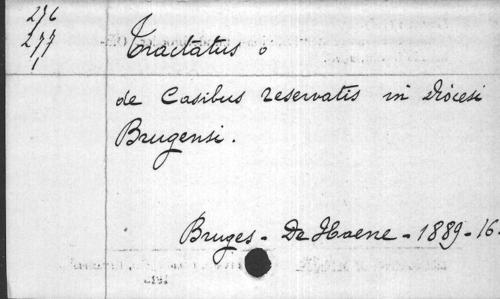 276
277
1
Tractatus o
de Casibus reservatis in Diocesi
Brugensi.
Bruges - De Haene - 1889 - 16.